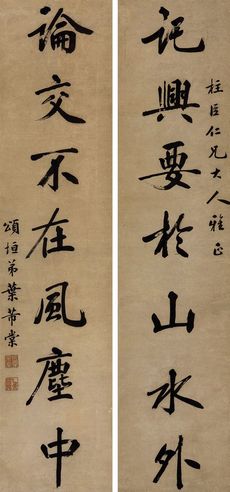 柱臣仁兄大人雅正
託興要於山水外
論交不在風塵中
頌垣弟葉芾棠